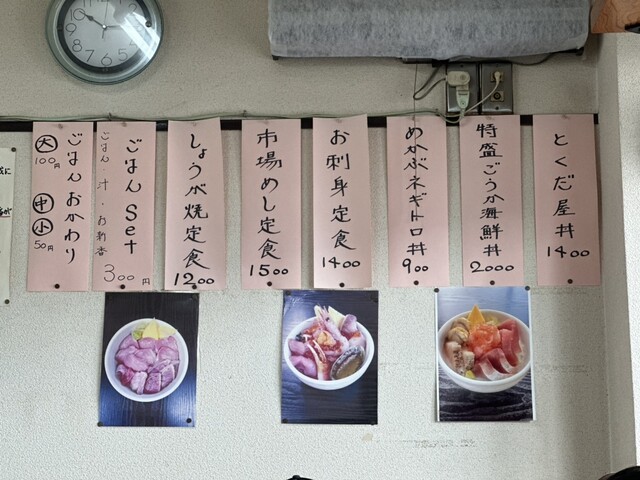 とくだ屋丼
1400
特盛ごうか海鮮丼
2000
めかぶネギトロ丼
900
お刺身定食
1400
市場めし定食
1500
しょうが焼定食
1200
ごはんSet
ごはん・汁・お新香
300円
ごはんおかわり
大 100円
中 小 50円